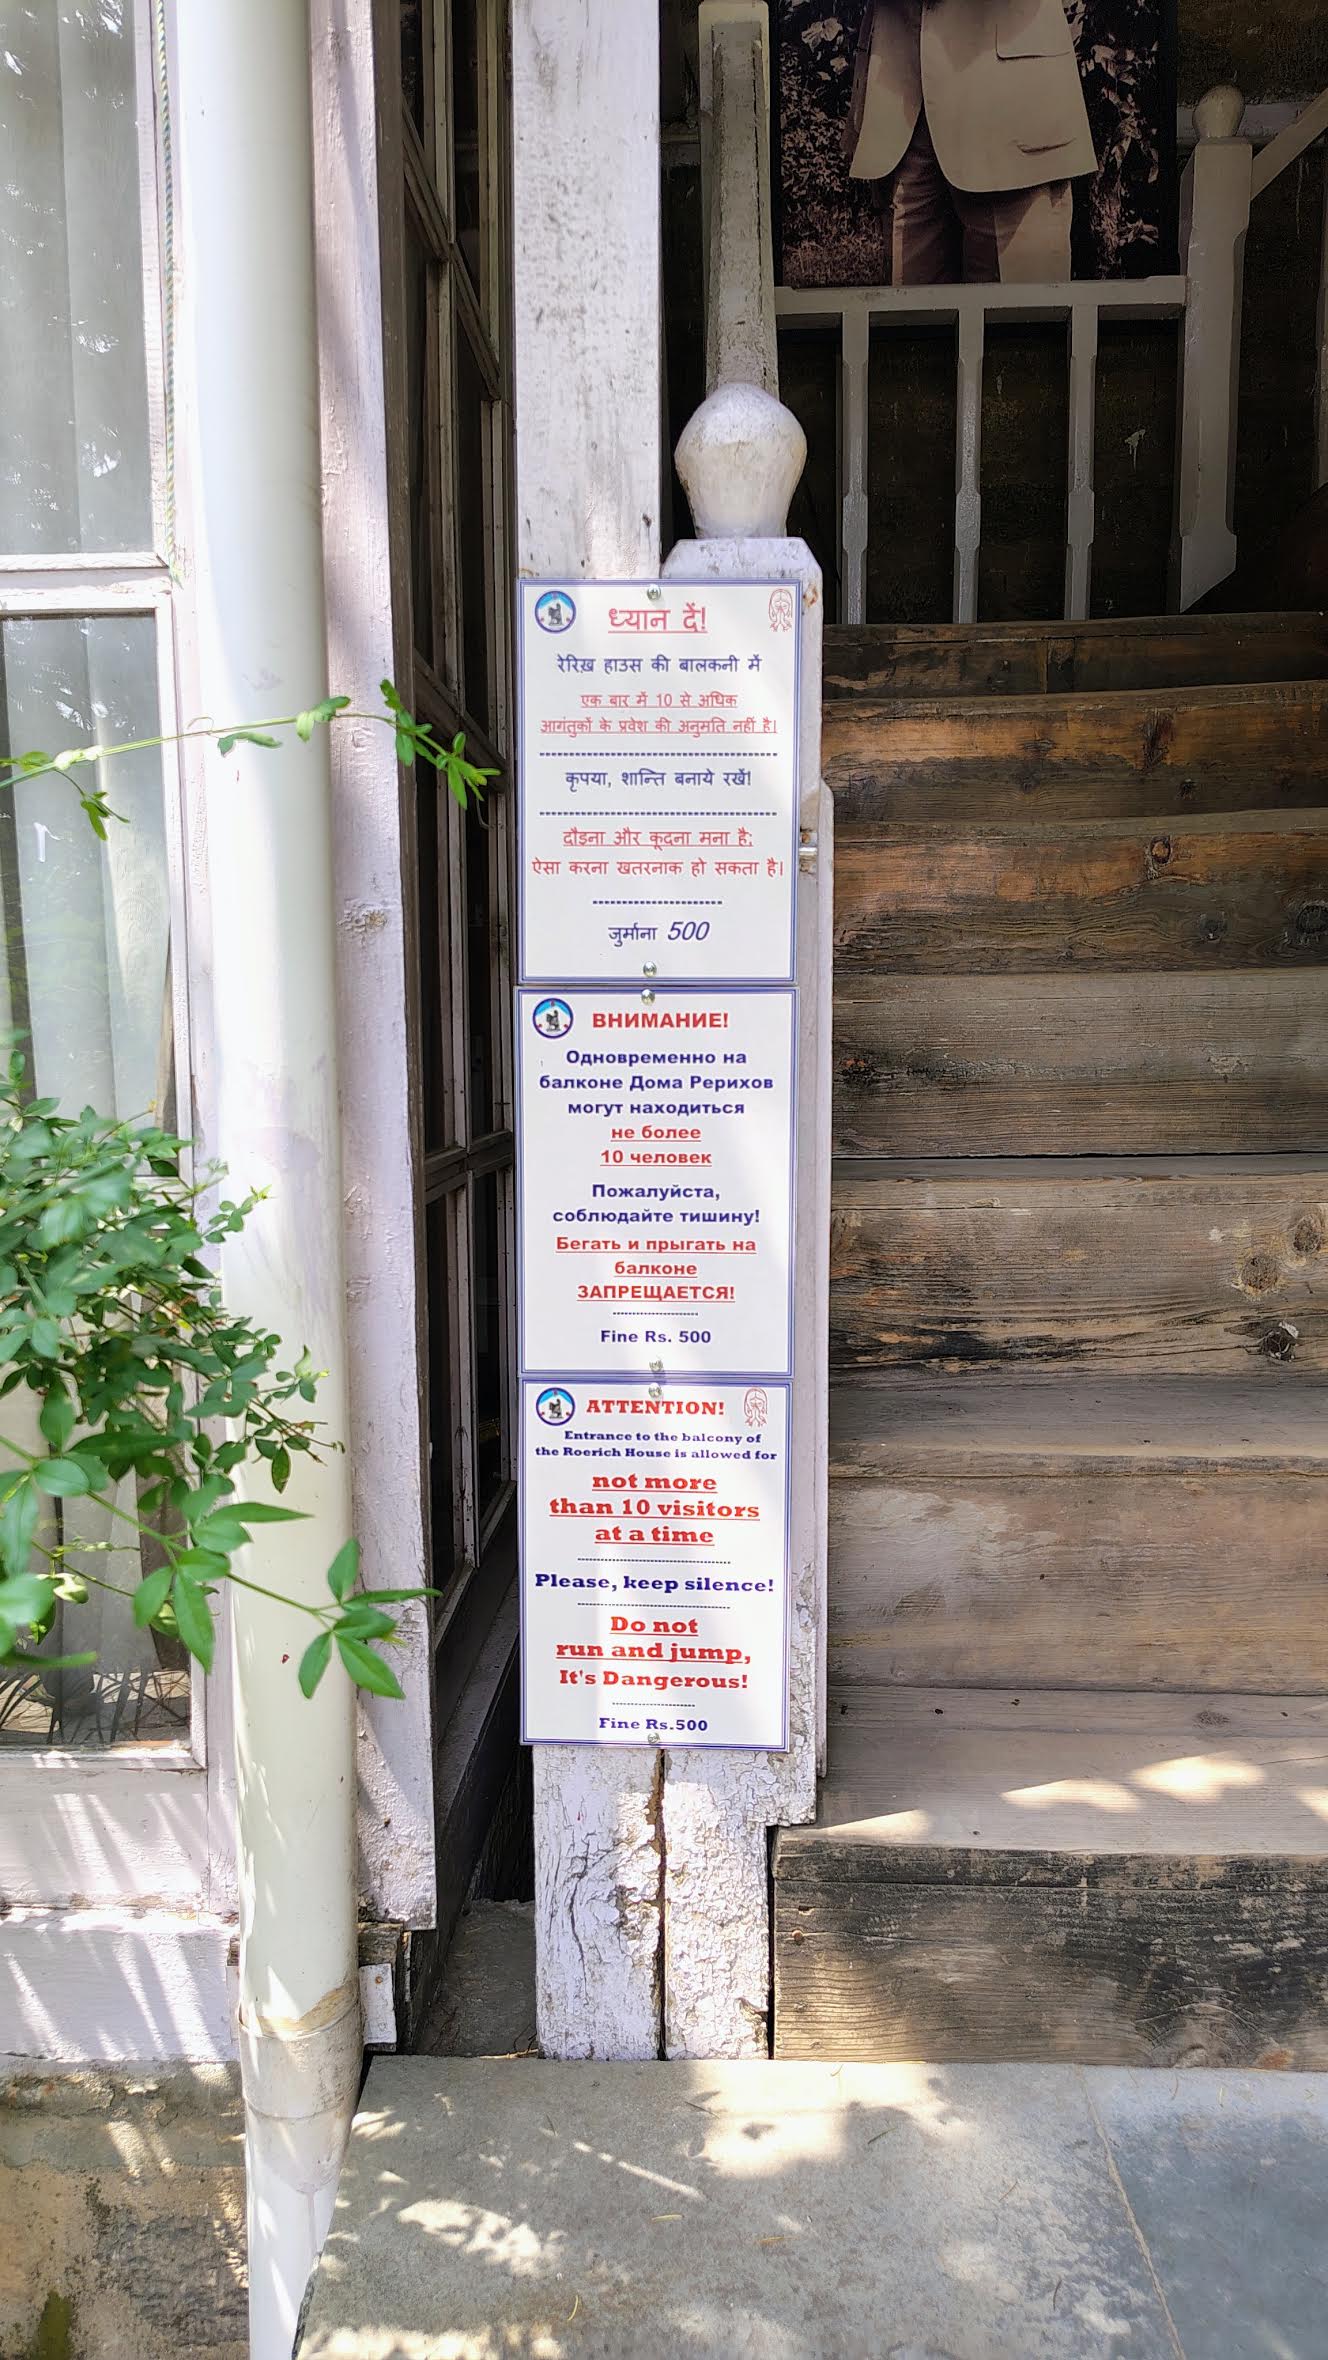 ध्यान दें!
रेरिख़ हाउस की बालकनी में
एक बार में 10 से अधिक
आगंतुकों के प्रवेश की अनुमति नहीं है।
कृपया, शान्ति बनाये रखें!
दौड़ना और कूदना मना है;
ऐसा करना खतरनाक हो सकता है।
जुर्माना 500
ВНИМАНИЕ!
Одновременно на
балконе Дома Рерихов
могут находиться
не более
10 человек
Пожалуйста,
соблюдайте тишину!
Бегать и прыгать на
балконе
ЗАПРЕЩАЕТСЯ!
Fine Rs. 500
ATTENTION!
Entrance to the balcony of
the Roerich House is allowed for
not more
than 10 visitors
at a time
Please, keep silence!
Do not
run and jump,
It's Dangerous!
Fine Rs.500